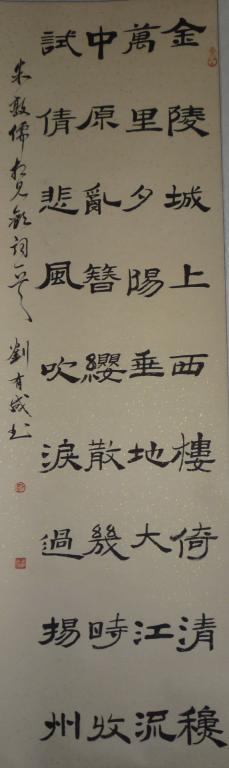 金陵城上西樓倚清穐
萬里夕陽垂地大江流
中原亂簪纓散幾時收
試倩悲風吹淚過揚州
朱敦儒相見歡詞一首 劉有书